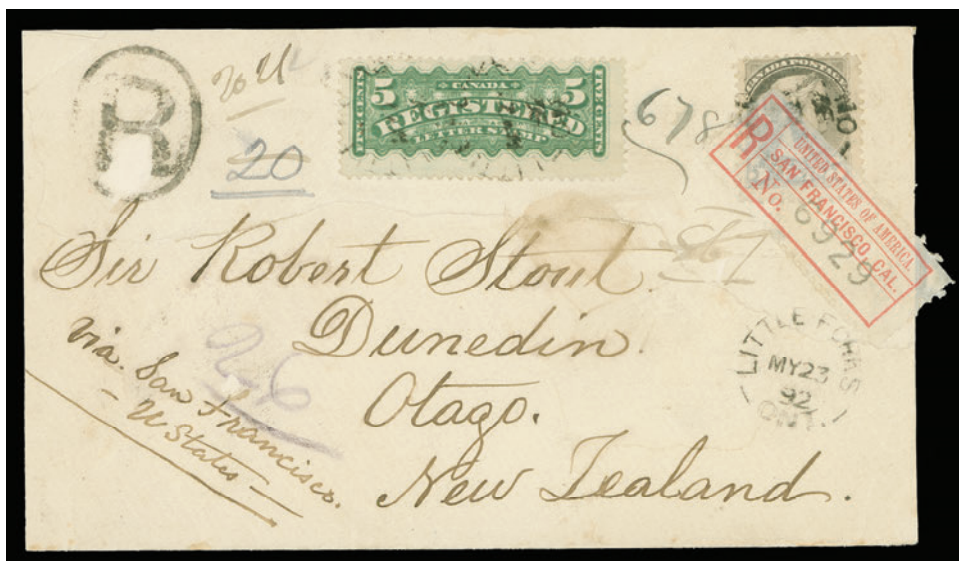 R
20
CANADA
5 REGISTERED 5
LETTER STAMP
FIVE CENTS
FIVE CENTS
678
CANADA POSTAGE
R
UNITED STATES OF AMERICA.
SAN FRANCISCO, CAL.
No. 6929
Sir Robert Stout.
Dunedin.
Otago.
New Zealand.
via. San Francisco.
- U States -
26
LITTLE FORKS
MY 23
92
ONT.